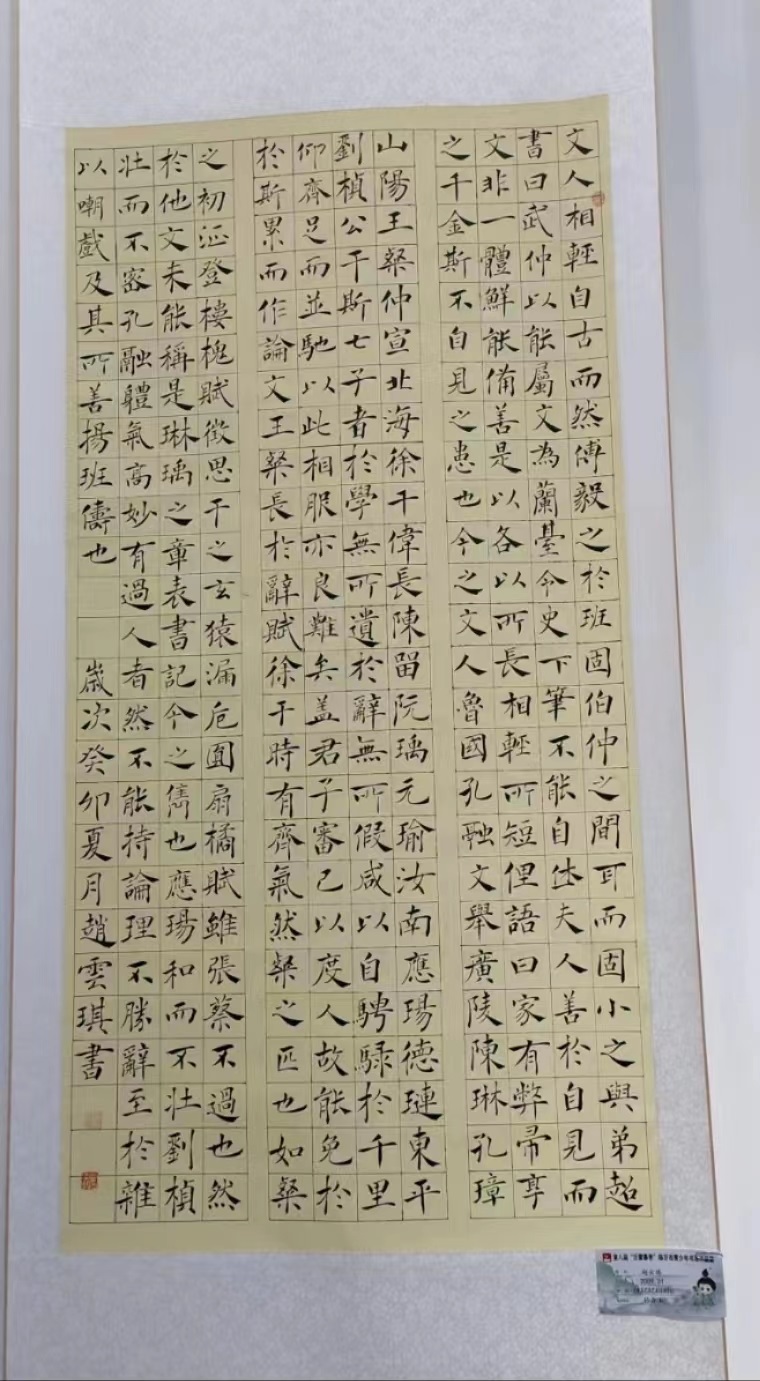 文人相輕自古而然傅毅之於班固伯仲之間耳而固小之與弟超
書曰武仲以能屬文為蘭臺令史下筆不能自休夫人善於自見而
文非一體鮮能備善是以各以所長相輕所短俚語曰家有弊帚享
之千金斯不自見之患也今之文人魯國孔融文舉廣陵陳琳孔璋
山陽王粲仲宣北海徐干偉長陳留阮瑀元瑜汝南應瑒德璉東平
劉楨公干斯七子者於學無所遺於辭無所假咸以自騁騄於千里
仰齊足而並馳以此相服亦良難矣蓋君子審己以度人故能免於
於斯累而作論文王粲長於辭賦徐干時有齊氣然粲之匹也如粲
之初征登樓槐賦徵思干之玄猿漏卮圓扇橘賦雖張蔡不過也然
於他文未能稱是琳瑀之章表書記今之儁也應瑒和而不壯劉楨
壯而不密孔融體氣高妙有過人者然不能持論理不勝辭至於雜
以嘲戲及其所善揚班儔也 歲次癸卯夏月趙雲琪書